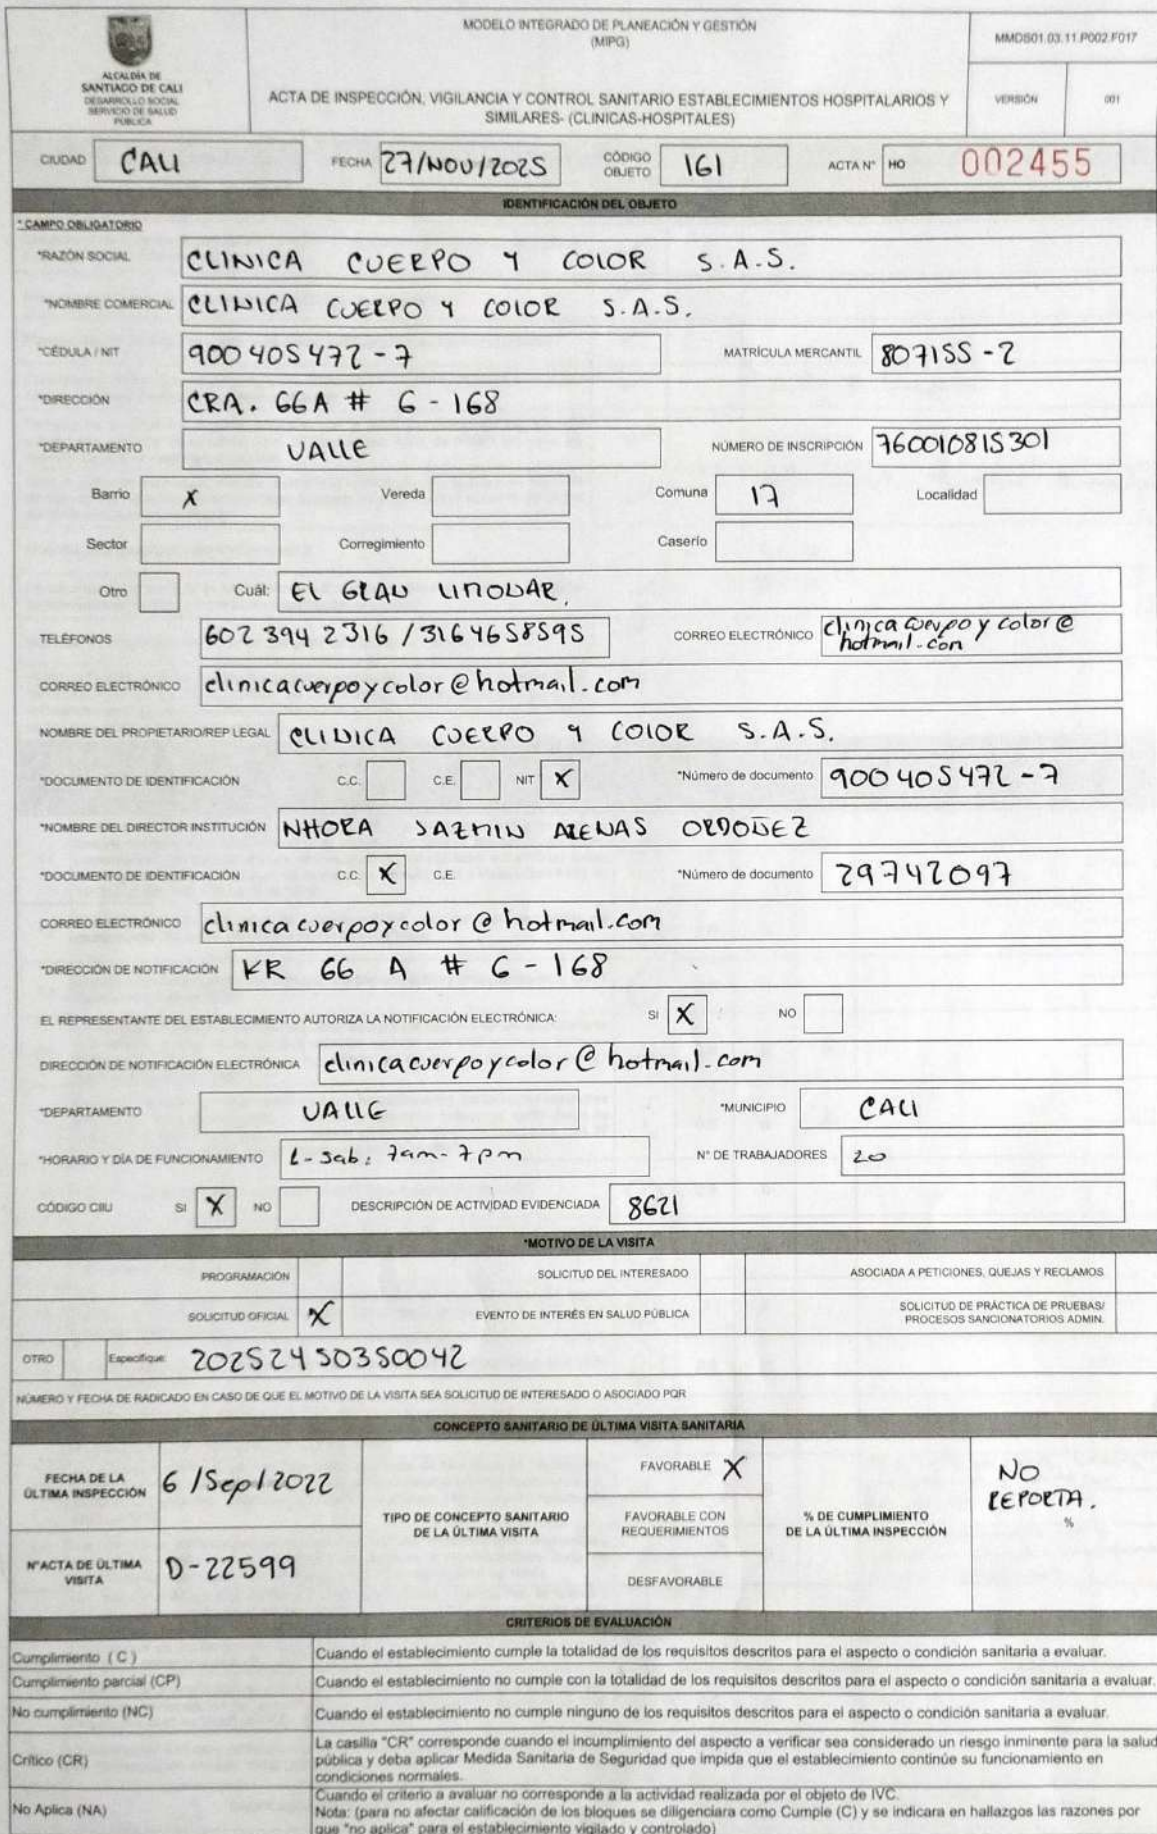 ALCALDÍA DE
SANTIAGO DE CALI
DESARROLLO SOCIAL
SERVICIO DE SALUD
PÚBLICA
MODELO INTEGRADO DE PLANEACIÓN Y GESTIÓN
(MIPG)
ACTA DE INSPECCIÓN, VIGILANCIA Y CONTROL SANITARIO ESTABLECIMIENTOS HOSPITALARIOS Y
SIMILARES- (CLINICAS-HOSPITALES)
MMDS01.03.11.P002.F017
VERSIÓN 001
CIUDAD CALI FECHA 27/NOV/2025 CÓDIGO OBJETO 161 ACTA N° HO 002455
IDENTIFICACIÓN DEL OBJETO
* CAMPO OBLIGATORIO
*RAZÓN SOCIAL CLINICA CUERPO Y COLOR S.A.S.
*NOMBRE COMERCIAL CLINICA CUERPO Y COLOR S.A.S.
*CÉDULA / NIT 900405472-7 MATRÍCULA MERCANTIL 807155-2
*DIRECCIÓN CRA. 66A # 6-168
*DEPARTAMENTO VALLE NÚMERO DE INSCRIPCIÓN 760010815301
Barrio X Vereda Comuna 17 Localidad
Sector Corregimiento Caserío
Otro Cuál: EL GRAN LIMONAR.
TELÉFONOS 602 394 2316 / 3164658595 CORREO ELECTRÓNICO clinicacuerpoycolor@
hotmail.com
CORREO ELECTRÓNICO clinicacuerpoycolor@hotmail.com
NOMBRE DEL PROPIETARIO/REP LEGAL CLINICA CUERPO Y COLOR S.A.S.
*DOCUMENTO DE IDENTIFICACIÓN C.C. C.E. NIT X *Número de documento 900405472-7
*NOMBRE DEL DIRECTOR INSTITUCIÓN NHORA JAZMIN ARENAS ORDOÑEZ
*DOCUMENTO DE IDENTIFICACIÓN C.C. X C.E. *Número de documento 29742097
CORREO ELECTRÓNICO clinicacuerpoycolor@hotmail.com
*DIRECCIÓN DE NOTIFICACIÓN KR 66 A # 6-168
EL REPRESENTANTE DEL ESTABLECIMIENTO AUTORIZA LA NOTIFICACIÓN ELECTRÓNICA: SI X NO
DIRECCIÓN DE NOTIFICACIÓN ELECTRÓNICA clinicacuerpoycolor@hotmail.com
*DEPARTAMENTO VALLE *MUNICIPIO CALI
*HORARIO Y DÍA DE FUNCIONAMIENTO L-sab: 7am-7pm N° DE TRABAJADORES 20
CÓDIGO CIIU SI X NO DESCRIPCIÓN DE ACTIVIDAD EVIDENCIADA 8621
*MOTIVO DE LA VISITA
PROGRAMACIÓN SOLICITUD DEL INTERESADO ASOCIADA A PETICIONES, QUEJAS Y RECLAMOS
SOLICITUD OFICIAL X EVENTO DE INTERÉS EN SALUD PÚBLICA SOLICITUD DE PRÁCTICA DE PRUEBAS/
PROCESOS SANCIONATORIOS ADMIN.
OTRO Especifique: 202524450350042
NÚMERO Y FECHA DE RADICADO EN CASO DE QUE EL MOTIVO DE LA VISITA SEA SOLICITUD DE INTERESADO O ASOCIADO PQR
CONCEPTO SANITARIO DE ÚLTIMA VISITA SANITARIA
FECHA DE LA
ÚLTIMA INSPECCIÓN 6/Sep/2022
N°ACTA DE ÚLTIMA
VISITA D-22599
TIPO DE CONCEPTO SANITARIO
DE LA ÚLTIMA VISITA
FAVORABLE X
FAVORABLE CON
REQUERIMIENTOS
DESFAVORABLE
% DE CUMPLIMIENTO
DE LA ÚLTIMA INSPECCIÓN
NO
REPORTA.
%
CRITERIOS DE EVALUACIÓN
Cumplimiento ( C ) Cuando el establecimiento cumple la totalidad de los requisitos descritos para el aspecto o condición sanitaria a evaluar.
Cumplimiento parcial (CP) Cuando el establecimiento no cumple con la totalidad de los requisitos descritos para el aspecto o condición sanitaria a evaluar.
No cumplimiento (NC) Cuando el establecimiento no cumple ninguno de los requisitos descritos para el aspecto o condición sanitaria a evaluar.
Crítico (CR) La casilla "CR" corresponde cuando el incumplimiento del aspecto a verificar sea considerado un riesgo inminente para la salud
pública y deba aplicar Medida Sanitaria de Seguridad que impida que el establecimiento continúe su funcionamiento en
condiciones normales.
No Aplica (NA) Cuando el criterio a evaluar no corresponde a la actividad realizada por el objeto de IVC.
Nota: (para no afectar calificación de los bloques se diligenciara como Cumple (C) y se indicara en hallazgos las razones por
que "no aplica" para el establecimiento vigilado y controlado)